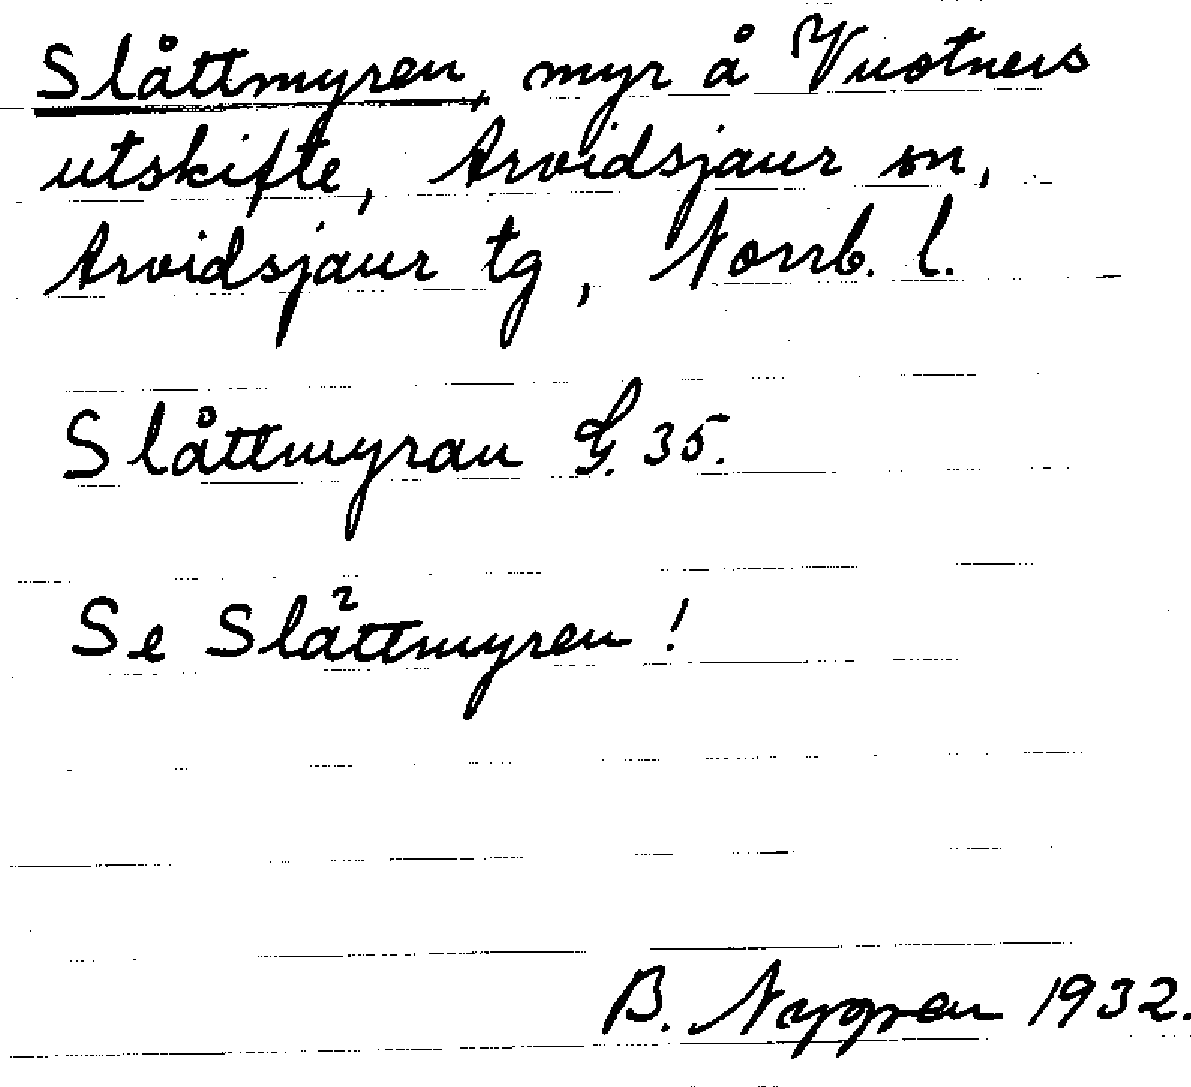 Slåttmyren, myr å Vuotners
utskifte, Arvidsjaur sn,
Arvidsjaur tg, Norrb. l.
Slåttmyran G. 35.
Se Slåttmyren 2!
B. Nygren 1932.